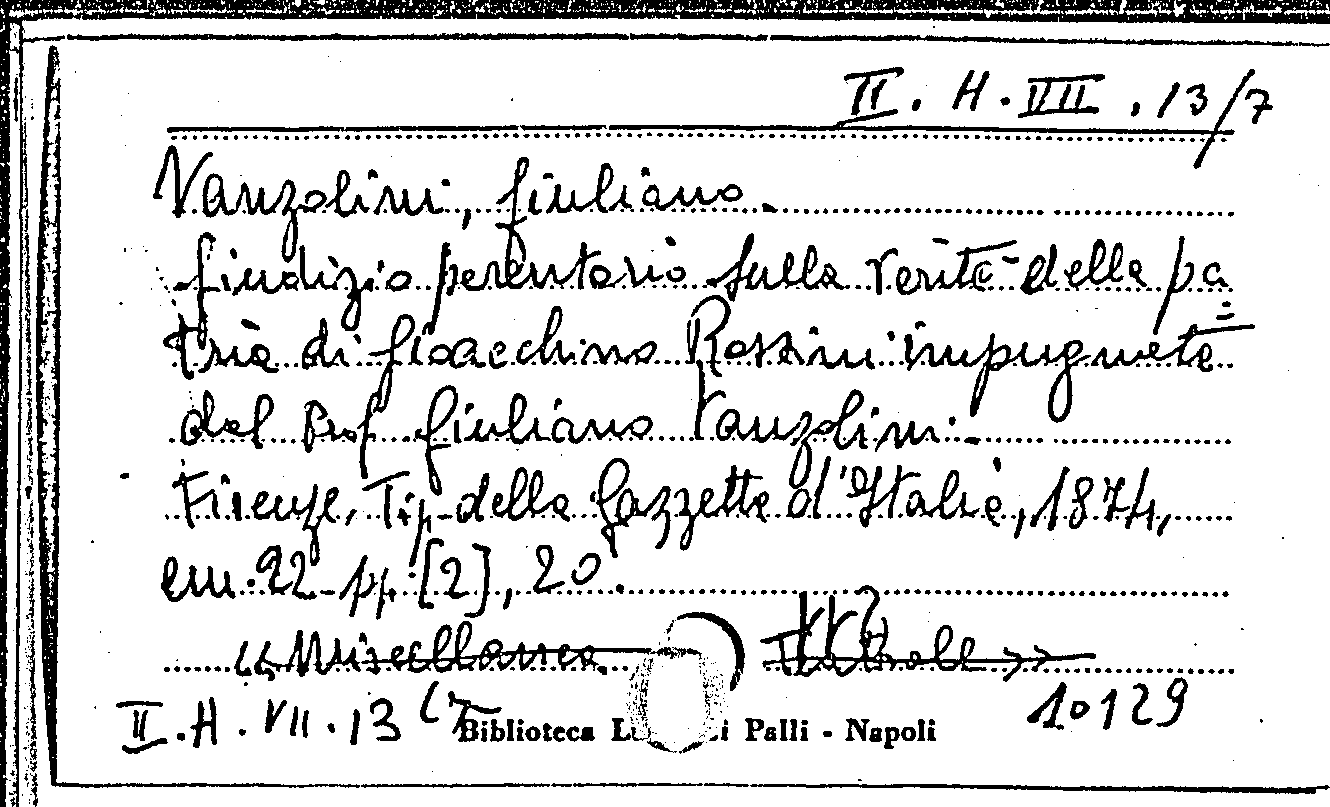 II. H. VII. 13/7
Vanzolini, Giuliano.
Giudizio perentorio sulla verità della pa=
tria di Gioacchino Rossini impugnata
dal Prof. Giuliano Vanzolini.
Firenze, Tip. della Gazzetta d'Italia, 1874,
cm. 22 pp. [2], 20.
«Miscellanea »
II. H. VII. 13 (7 10129
Biblioteca Palli - Napoli